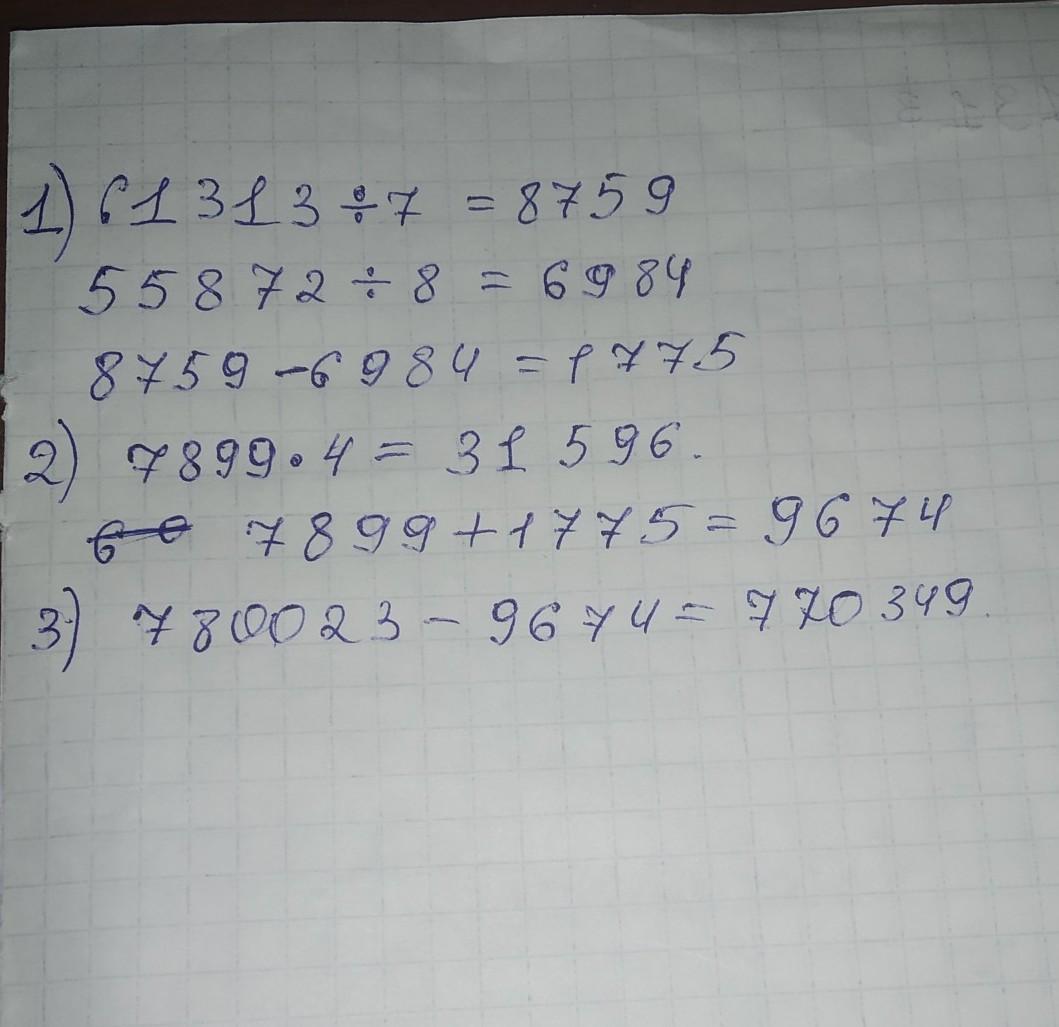 1) 61313÷7 = 8759
55872÷8 = 6984
8759-6984 = 1775
2) 7899·4 = 31596.
7899+1775 = 9674
3) 780023-9674 = 770349.